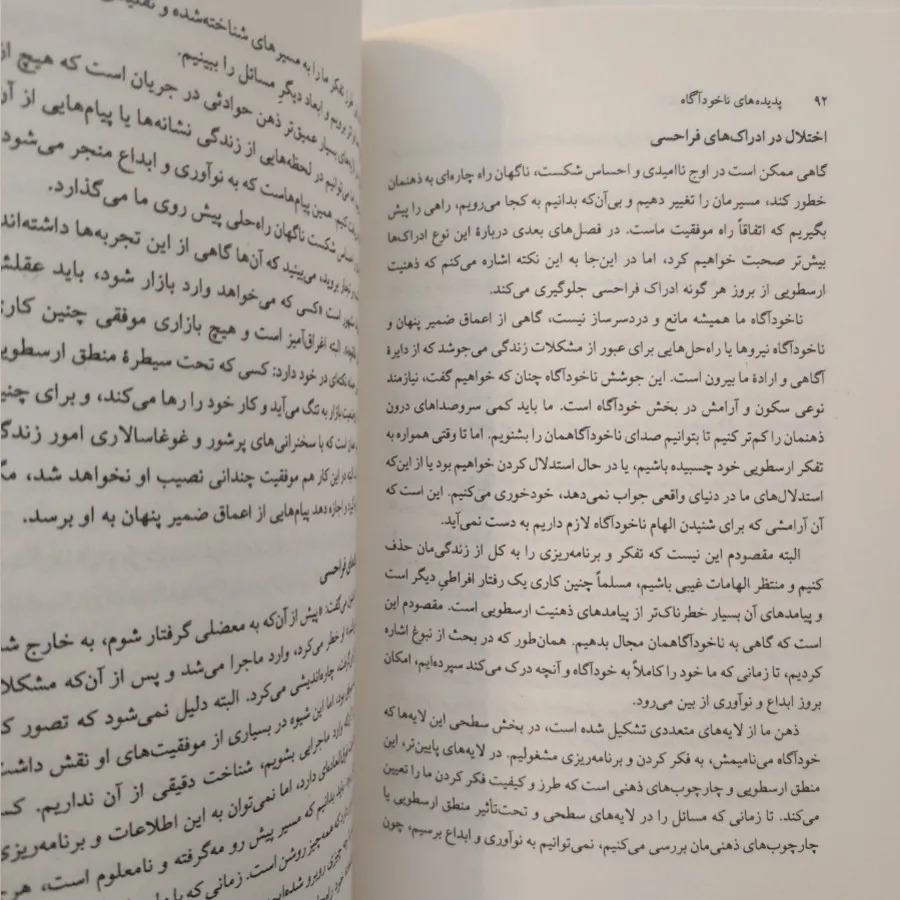 ۹۲ پدیده‌های ناخودآگاه
اختلال در ادراک‌های فراحسی
گاهی ممکن است در اوج ناامیدی و احساس شکست، ناگهان راه چاره‌ای به ذهنمان
خطور کند، مسیرمان را تغییر دهیم و بی‌آن‌که بدانیم به کجا می‌رویم، راهی را پیش
بگیریم که اتفاقاً راه موفقیت ماست. در فصل‌های بعدی دربارهٔ این نوع ادراک‌ها
بیش‌تر صحبت خواهیم کرد، اما در این‌جا به این نکته اشاره می‌کنم که ذهنیت
ارسطویی از بروز هر گونه ادراک فراحسی جلوگیری می‌کند.
ناخودآگاه ما همیشه مانع و دردسرساز نیست، گاهی از اعماق ضمیر پنهان و
ناخودآگاه نیروها یا راه‌حل‌هایی برای عبور از مشکلات زندگی می‌جوشد که از دایرهٔ
آگاهی و ارادهٔ ما بیرون است. این جوشش ناخودآگاه چنان که خواهیم گفت، نیازمند
نوعی سکون و آرامش در بخش خودآگاه است. ما باید کمی سروصداهای درون
ذهنمان را کم‌تر کنیم تا بتوانیم صدای ناخودآگاهمان را بشنویم. اما تا وقتی همواره به
تفکر ارسطویی خود چسبیده باشیم، یا در حال استدلال کردن خواهیم بود یا از این‌که
استدلال‌های ما در دنیای واقعی جواب نمی‌دهد، خودخوری می‌کنیم. این است که
آن آرامشی که برای شنیدن الهام ناخودآگاه لازم داریم به دست نمی‌آید.
البته مقصودم این نیست که تفکر و برنامه‌ریزی را به کل از زندگی‌مان حذف
کنیم و منتظر الهامات غیبی باشیم، مسلماً چنین کاری یک رفتار افراطی دیگر است
و پیامدهای آن بسیار خطرناک‌تر از پیامدهای ذهنیت ارسطویی است. مقصودم این
است که گاهی به ناخودآگاهمان مجال بدهیم. همان‌طور که در بحث از نبوغ اشاره
کردیم، تا زمانی که ما خود را کاملاً به خودآگاه و آنچه درک می‌کند سپرده‌ایم، امکان
بروز ابداع و نوآوری از بین می‌رود.
ذهن ما از لایه‌های متعددی تشکیل شده است، در بخش سطحی این لایه‌ها که
خودآگاه می‌نامیمش، به فکر کردن و برنامه‌ریزی مشغولیم. در لایه‌های پایین‌تر، این
منطق ارسطویی و چارچوب‌های ذهنی است که طرز و کیفیت فکر کردن ما را تعیین
می‌کند. تا زمانی که مسائل را در لایه‌های سطحی و تحت‌تأثیر منطق ارسطویی یا
چارچوب‌های ذهنی‌مان بررسی می‌کنیم، نمی‌توانیم به نوآوری و ابداع برسیم، چون
تفکر ما را به مسیرهای شناخته‌شده و
و ابعاد دیگرِ مسائل را ببینیم.
بسیار عمیق‌تر ذهن حوادثی در جریان است که هیچ از
در لحظه‌هایی از زندگی نشانه‌ها یا پیام‌هایی از آن
همین پیام‌هاست که به نوآوری و ابداع منجر می‌شود
شکست ناگهان راه‌حلی پیش روی ما می‌گذارد.
بروید، می‌بینید که آن‌ها گاهی از این تجربه‌ها داشته‌اند
است «کسی که می‌خواهد وارد بازار شود، باید عقلش
البته اغراق‌آمیز است و هیچ بازاری موفقی چنین کاری
نکته‌ای در خود دارد: کسی که تحت سیطرهٔ منطق ارسطویی
بازار به تنگ می‌آید و کار خود را رها می‌کند، و برای چنین
است که با سخنرانی‌های پرشور و غوغاسالاری امور زندگی
در این کار هم موفقیت چندانی نصیب او نخواهد شد، مگر
اجازه دهد پیام‌هایی از اعماق ضمیر پنهان به او برسد.
فراحسی
می‌گفت: «پیش از آن‌که به معضلی گرفتار شوم، به خارج شدن
خطر می‌کرد، وارد ماجرا می‌شد و پس از آن‌که مشکلات
چاره‌اندیشی می‌کرد. البته دلیل نمی‌شود که تصور کنیم
اما این شیوه در بسیاری از موفقیت‌های او نقش داشت
وارد ماجرایی بشویم، شناخت دقیقی از آن نداریم. کسی
دارد، اما نمی‌توان به این اطلاعات و برنامه‌ریزی
بدانیم که مسیر پیش رو مه‌گرفته و نامعلوم است، هرچه
همه‌چیز روشن است. زمانی که